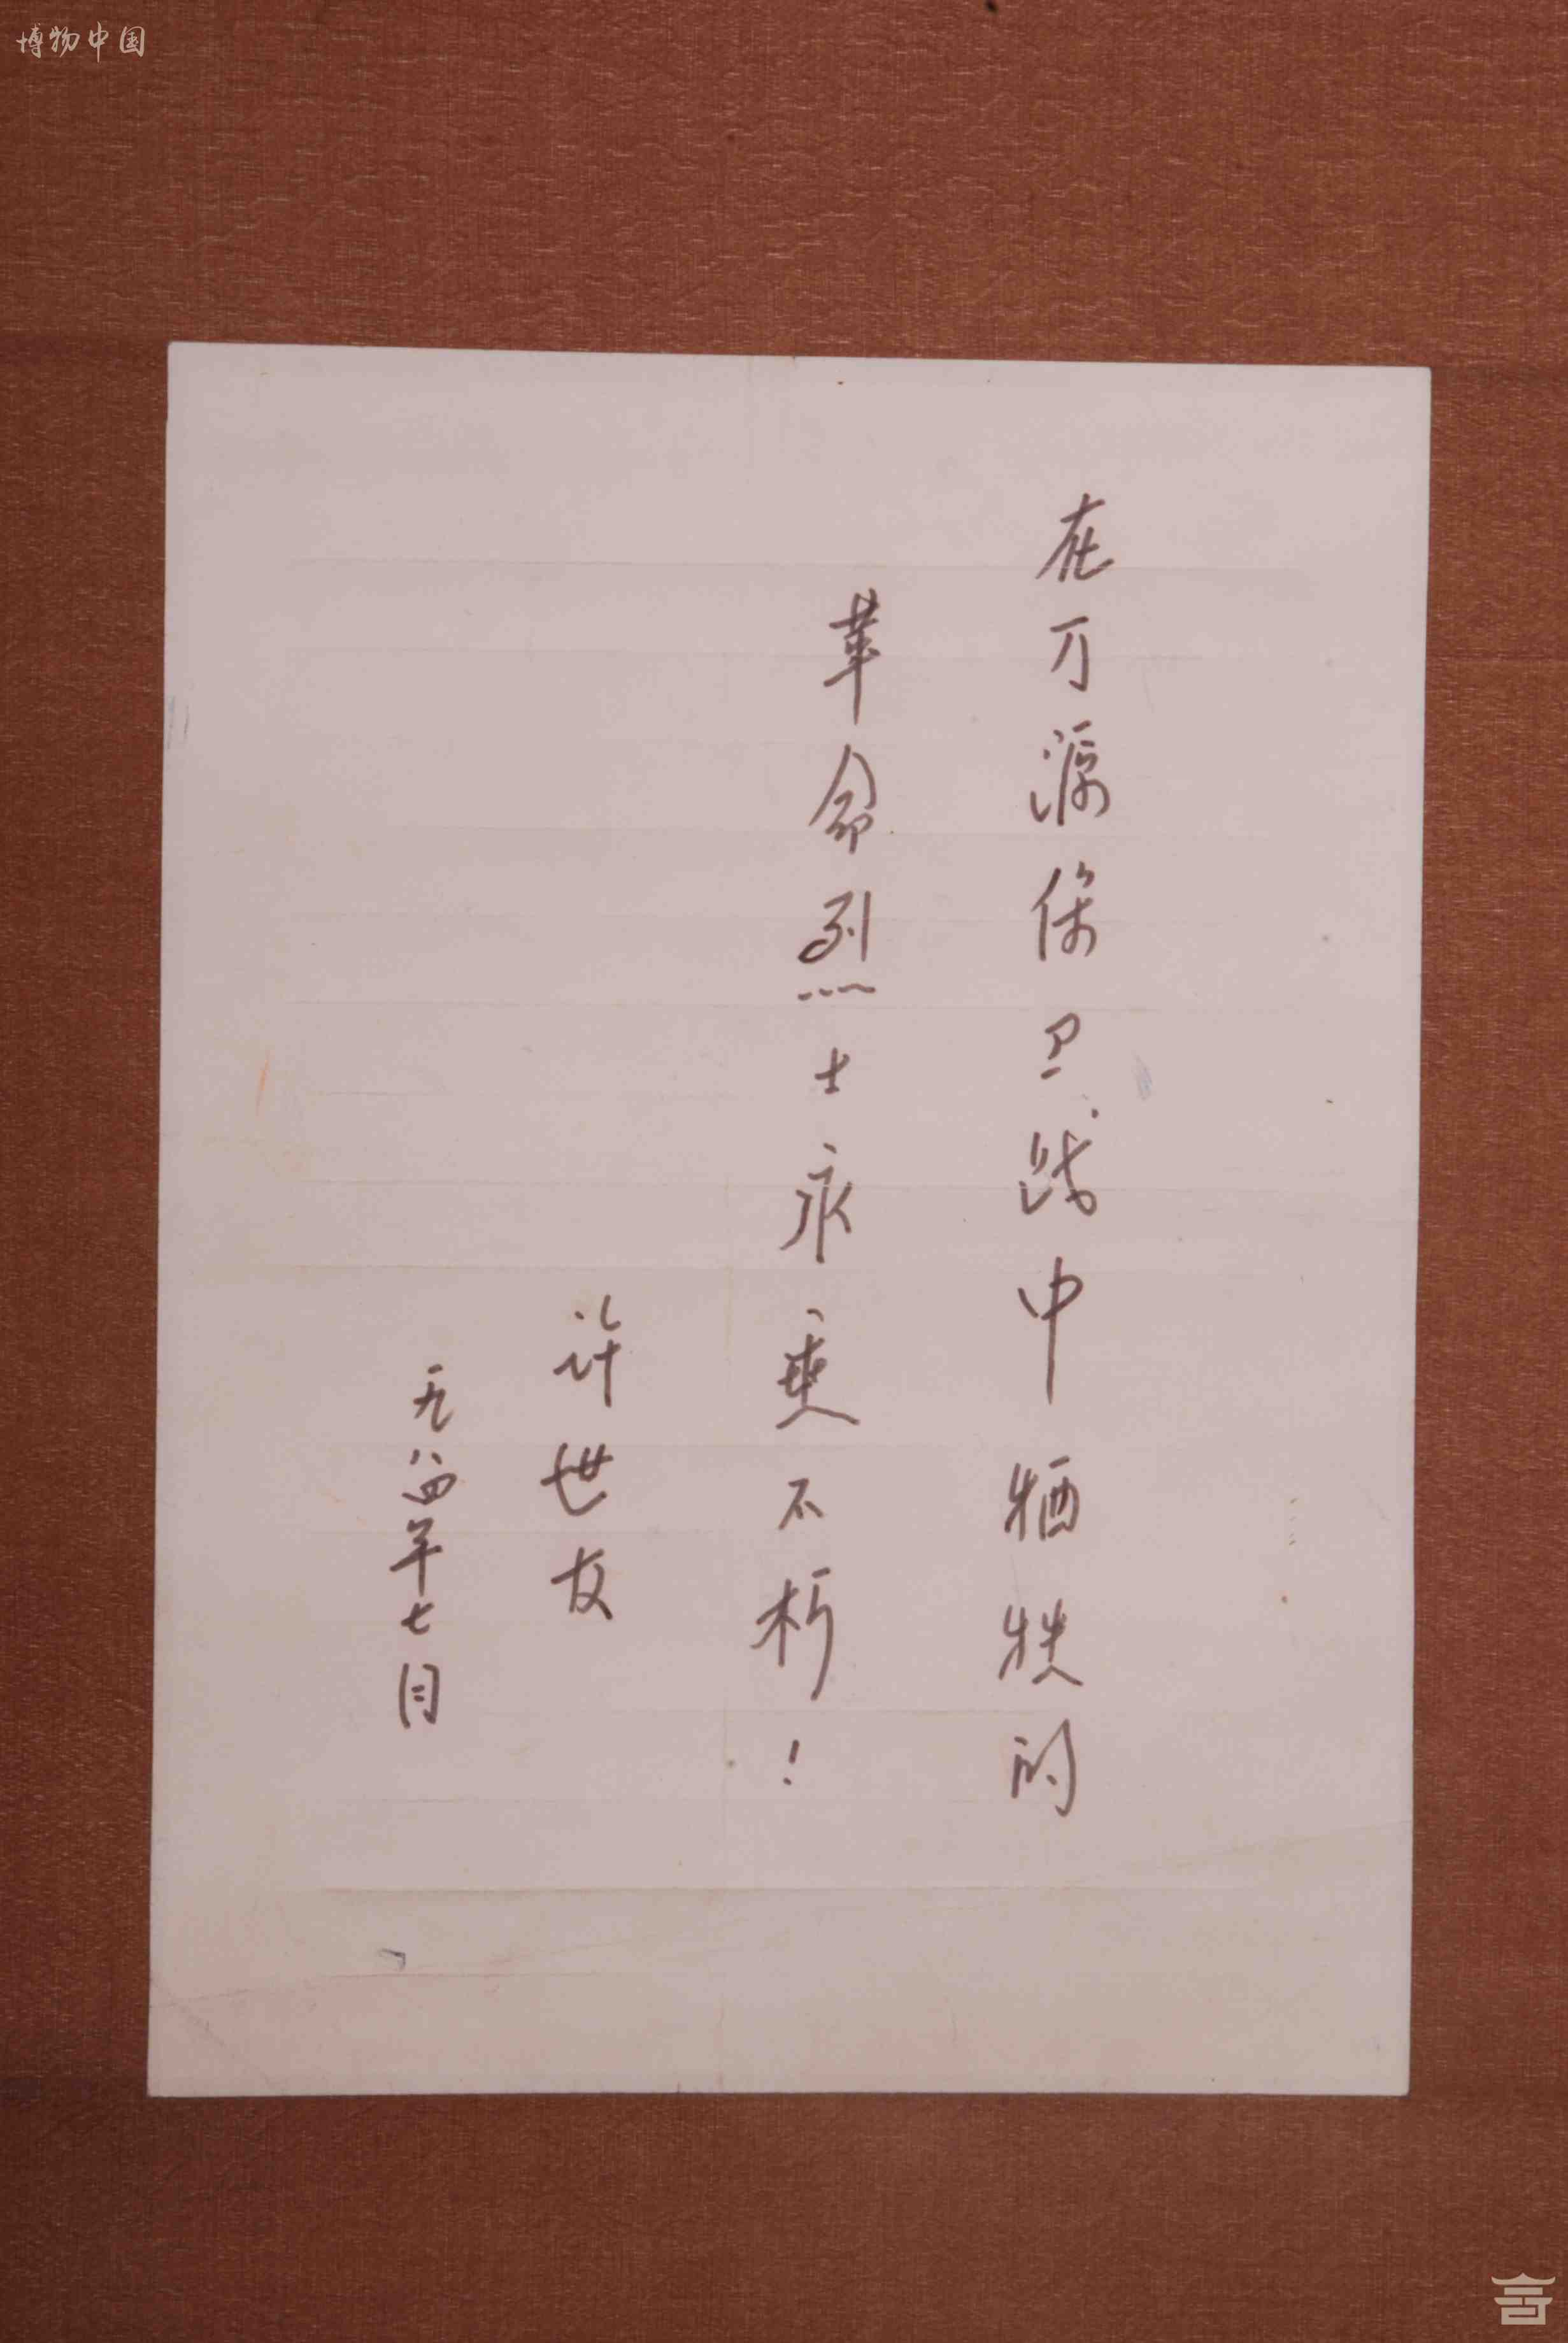 博物中国
在万源保卫战中牺牲的
革命烈士永垂不朽!
许世友
一九八四年七月